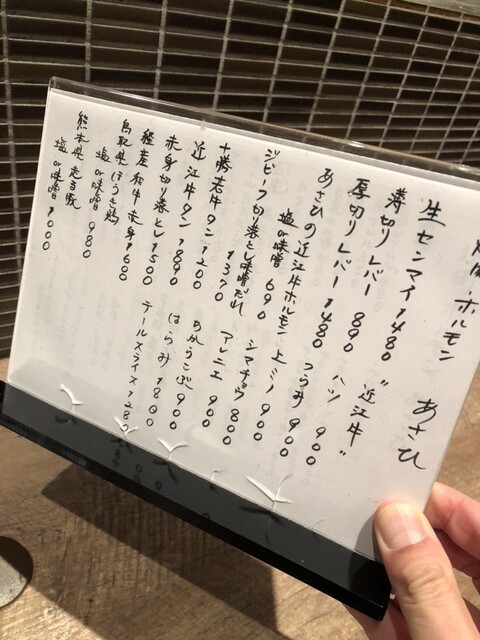 ホルモン あさひ
生センマイ 1480
薄切りレバー 890 "近江牛"
厚切りレバー 1480 ハツ 900
あさひの近江牛ホルモン つらみ 900
塩or味噌 690 上ミノ 900
ジビーフ切り落とし味噌だれ シマチョウ 800
1370 アレニエ 900
十勝若牛タン 1200 ちからこぶ 900
近江牛タン 1890 はらみ 1800
赤身切り落とし 1500 テールスライス 1280
経産和牛赤身 1600
鳥取県ほうき鶏
塩or味噌 980
熊本県走る豚
塩or味噌 1000